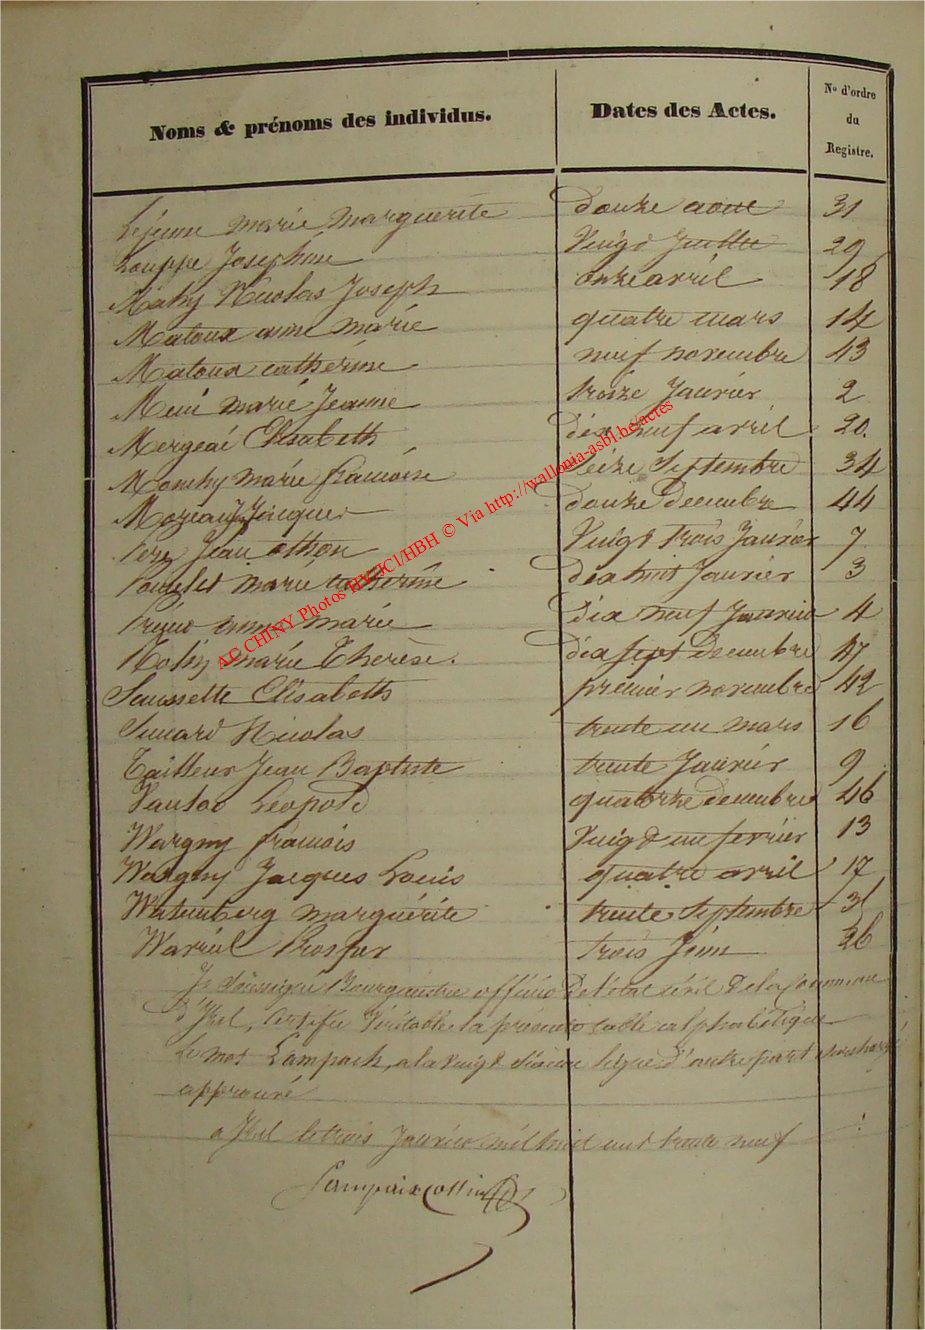 Noms & prénoms des individus. Dates des Actes. No d'ordre du Registre.
Lejeune marie Marguerite douze aout 31
Louppe Josephine Vingt Juillet 29
Mahy Nicolas Joseph onze avril 18
Matoux anne marie quatre mars 14
Matoux catherine neuf novembre 43
marie Jeanne treize Janvier 2
Mergeai Elisabeth dix neuf avril 20.
marie francoise Seize Septembre 34
Jacques douze decembre 44
Jean othon Vingt trois Janvier 7
marie catherine dix huit Janvier 3
anne marie dix neuf Janvier 4
marie Therèse. dix sept decembre 47
Saussette Elisabeth premier novembre 42
Nicolas trente un mars 16
Tailleur Jean Baptiste trente Janvier 9
Leopold quatorze decembre 46
Wargny francois Vingt un fevrier 13
Wargny Jacques Louis quatre avril 17
marguérite trente Septembre
Prosper trois Juin 26
Je Soussigné Bourgmestre officier De l'état civil De la Commune
D'Izel, Certifie Véritable la présente table alphabétique
Le mot Lampach, a la vingt ligne d'autre part
approuvé
a Izel le trois Janvier mil huit cent trente neuf
AC CHINY Photos HV/JCl/HBH © Via http://wallonia-asbl.be/actes